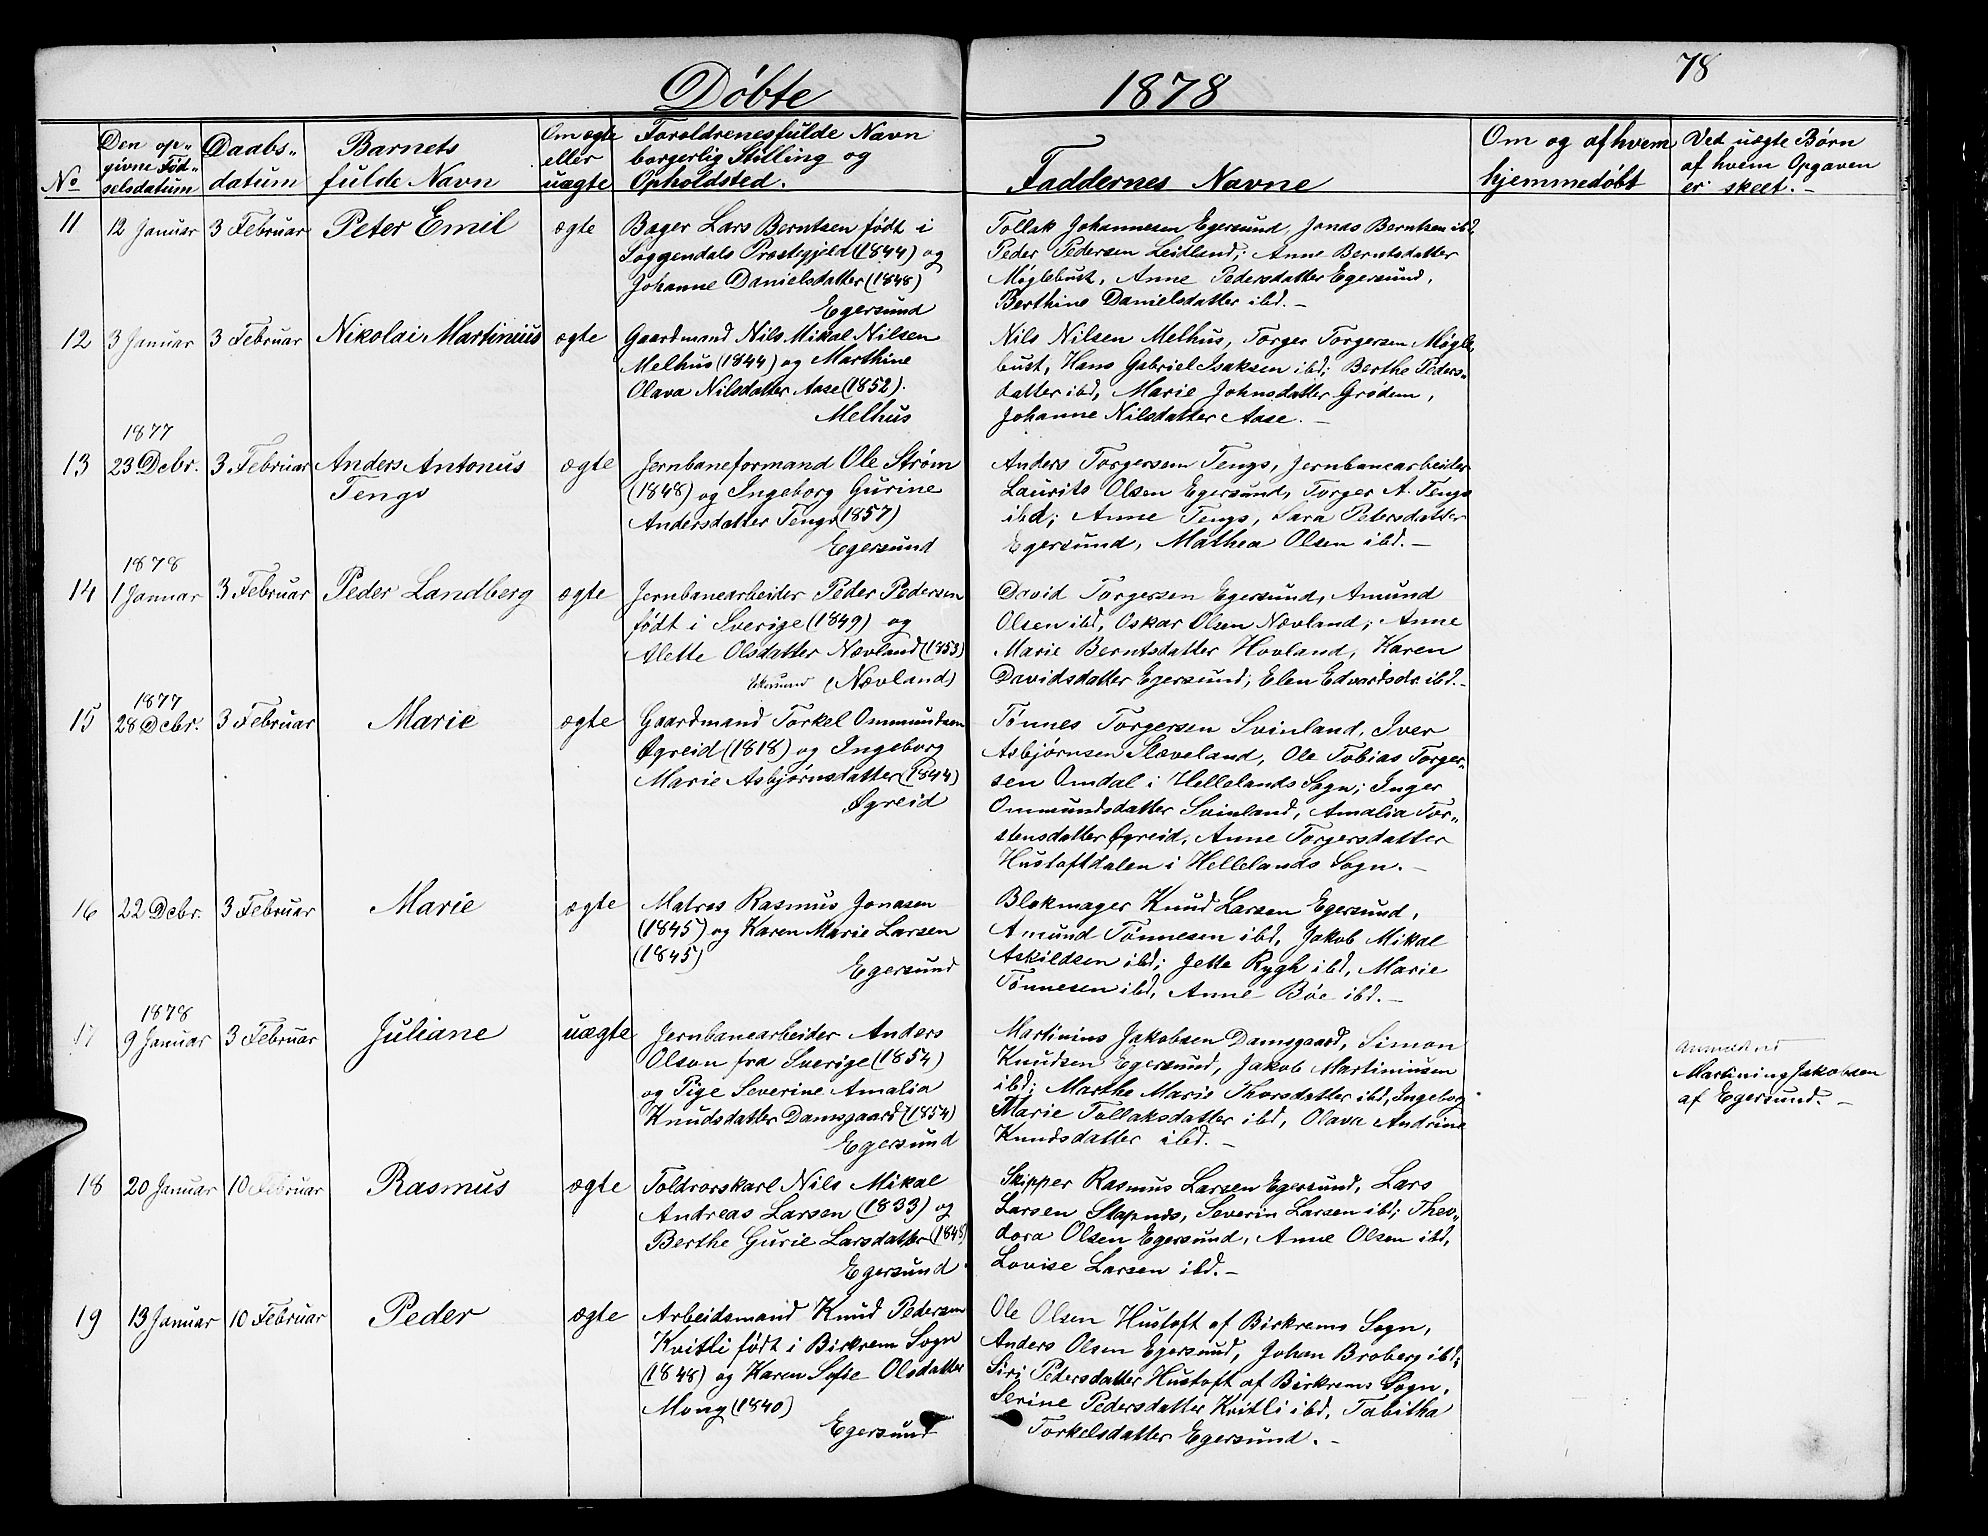 78
Døbte 1878
No
Den op-
givne Fød-
selsdatum
Daabs-
datum
Barnets
fulde Navn
Om ægte
eller
uægte
Forældrenes fulde Navn
borgerlig Stilling og
Opholdsted.
Faddernes Navne
Om og af hvem
hjemmedøbt
Ved uægte Børn
af hvem Opgaven
er skeet.
11 12 Januar 3 Februar Peter Emil ægte
Bager Lars Berntsen født i
Soggendals Præstegjeld (1844) og
Johanne Danielsdatter (1848)
Egersund
Tollak Johannesen Egersund, Jonas Berntsen ibd,
Peder Pedersen Leidland; Anne Berntsdatter
Møglebust, Anne Pedersdatter Egersund,
Berthine Danielsdatter ibd. –
12 3 Januar 3 Februar Nikolai Martinius ægte
Gaardmand Nils Mikal Nilsen
Melhus (1844) og Marthine
Olava Nilsdatter Aase (1852).
Melhus
Nils Nilsen Melhus, Torger Torgersen Møgle-
bust, Hans Gabriel Isaksen ibd; Berthe Peders-
datter ibd, Marie Johnsdatter Grødem,
Johanne Nilsdatter Aase. –
1877
13 23 Debr. 3 Februar Anders Antonus ægte
Tengs
Jernbaneformand Ole Strøm
(1848) og Ingeborg Gurine
Andersdatter Tengs (1857)
Egersund
Anders Torgersen Tengs, Jernbanearbeider
Laurits Olsen Egersund, Torger A. Tengs
ibd; Anne Tengs, Sara Petersdatter
Egersund, Mathea Olsen ibd. –
1878
14 1 Januar 3 Februar Peder Landberg ægte
Jernbanearbeider Peder Pedersen
født i Sverige (1849) og
Alette Olsdatter Nævland (1853)
(Nævland)
David Torgersen Egersund, Amund
Olsen ibd, Oskar Olsen Nævland; Anne
Marie Berntsdatter Hovland, Karen
Davidsdatter Egersund, Elen Edvardsdr. ibd. –
1877
15 28 Debr. 3 Februar Marie ægte
Gaardmand Torkel Ommundsen
Øgreid (1818) og Ingeborg
Marie Asbjørnsdatter (1844)
Øgreid
Tønnes Torgersen Svinland, Iver
Asbjørnsen Slæveland, Ole Tobias Torger-
sen Omdal i Hellelands Sogn; Inger
Ommundsdatter Svinland, Amalia Tor-
stensdatter Øgreid, Anne Torgersdatter
Hustoftdalen i Hellelands Sogn. –
16 22 Debr. 3 Februar Marie ægte
Matros Rasmus Jonasen
(1845) og Karen Marie Larsen
(1845)
Egersund
Blokmager Knud Larsen Egersund,
Amund Tønnesen ibd, Jakob Mikal
Askildsen ibd; Jette Rygh ibd, Marie
Tønnesen ibd, Anne Bøe ibd. –
1878
17 9 Januar 3 Februar Juliane uægte
Jernbanearbeider Anders
Olson fra Sverige (1854)
og Pige Severine Amalia
Knudsdatter Damsgaard (1854)
Egersund
Martinius Jakobsen Damsgaard, Simon
Knudsen Egersund, Jakob Martiniusen
ibd; Marthe Marie Thorsdatter ibd, Ingeborg
Marie Tollaksdatter ibd, Olava Andrine
Knudsdatter ibd. –
Anmeldt ved
Martinius Jakobsen
af Egersund. –
18 20 Januar 10 Februar Rasmus ægte
Toldrorskarl Nils Mikal
Andreas Larsen (1833) og
Berthe Gurie Larsdatter (1848)
Egersund
Skipper Rasmus Larsen Egersund, Lars
Larsen Slapnds, Severin Larsen ibd; Theo-
dora Olsen Egersund, Anne Olsen ibd,
Lovise Larsen ibd. –
19 13 Januar 10 Februar Peder ægte
Arbeidsmand Knud Pedersen
Kvitli født i Birkrem Sogn
(1848) og Karen Sofie Olsdatter
Mong (1840)
Egersund
Ole Olsen Hustoft af Birkrems Sogn,
Anders Olsen Egersund, Johan Broberg ibd;
Siri Pedersdatter Hustoft af Birkrems Sogn,
Serine Pedersdatter Kvitli ibd, Tabitha
Torkelsdatter Egersund. –